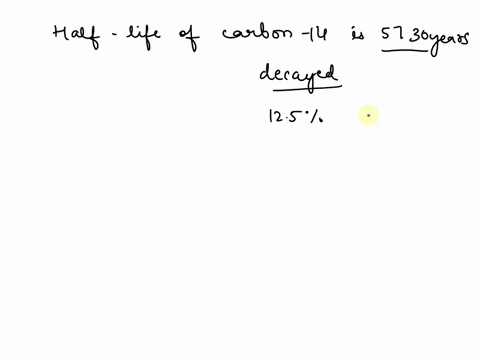 Half - life of carbon -14 is 5730years
decayed
12.5%